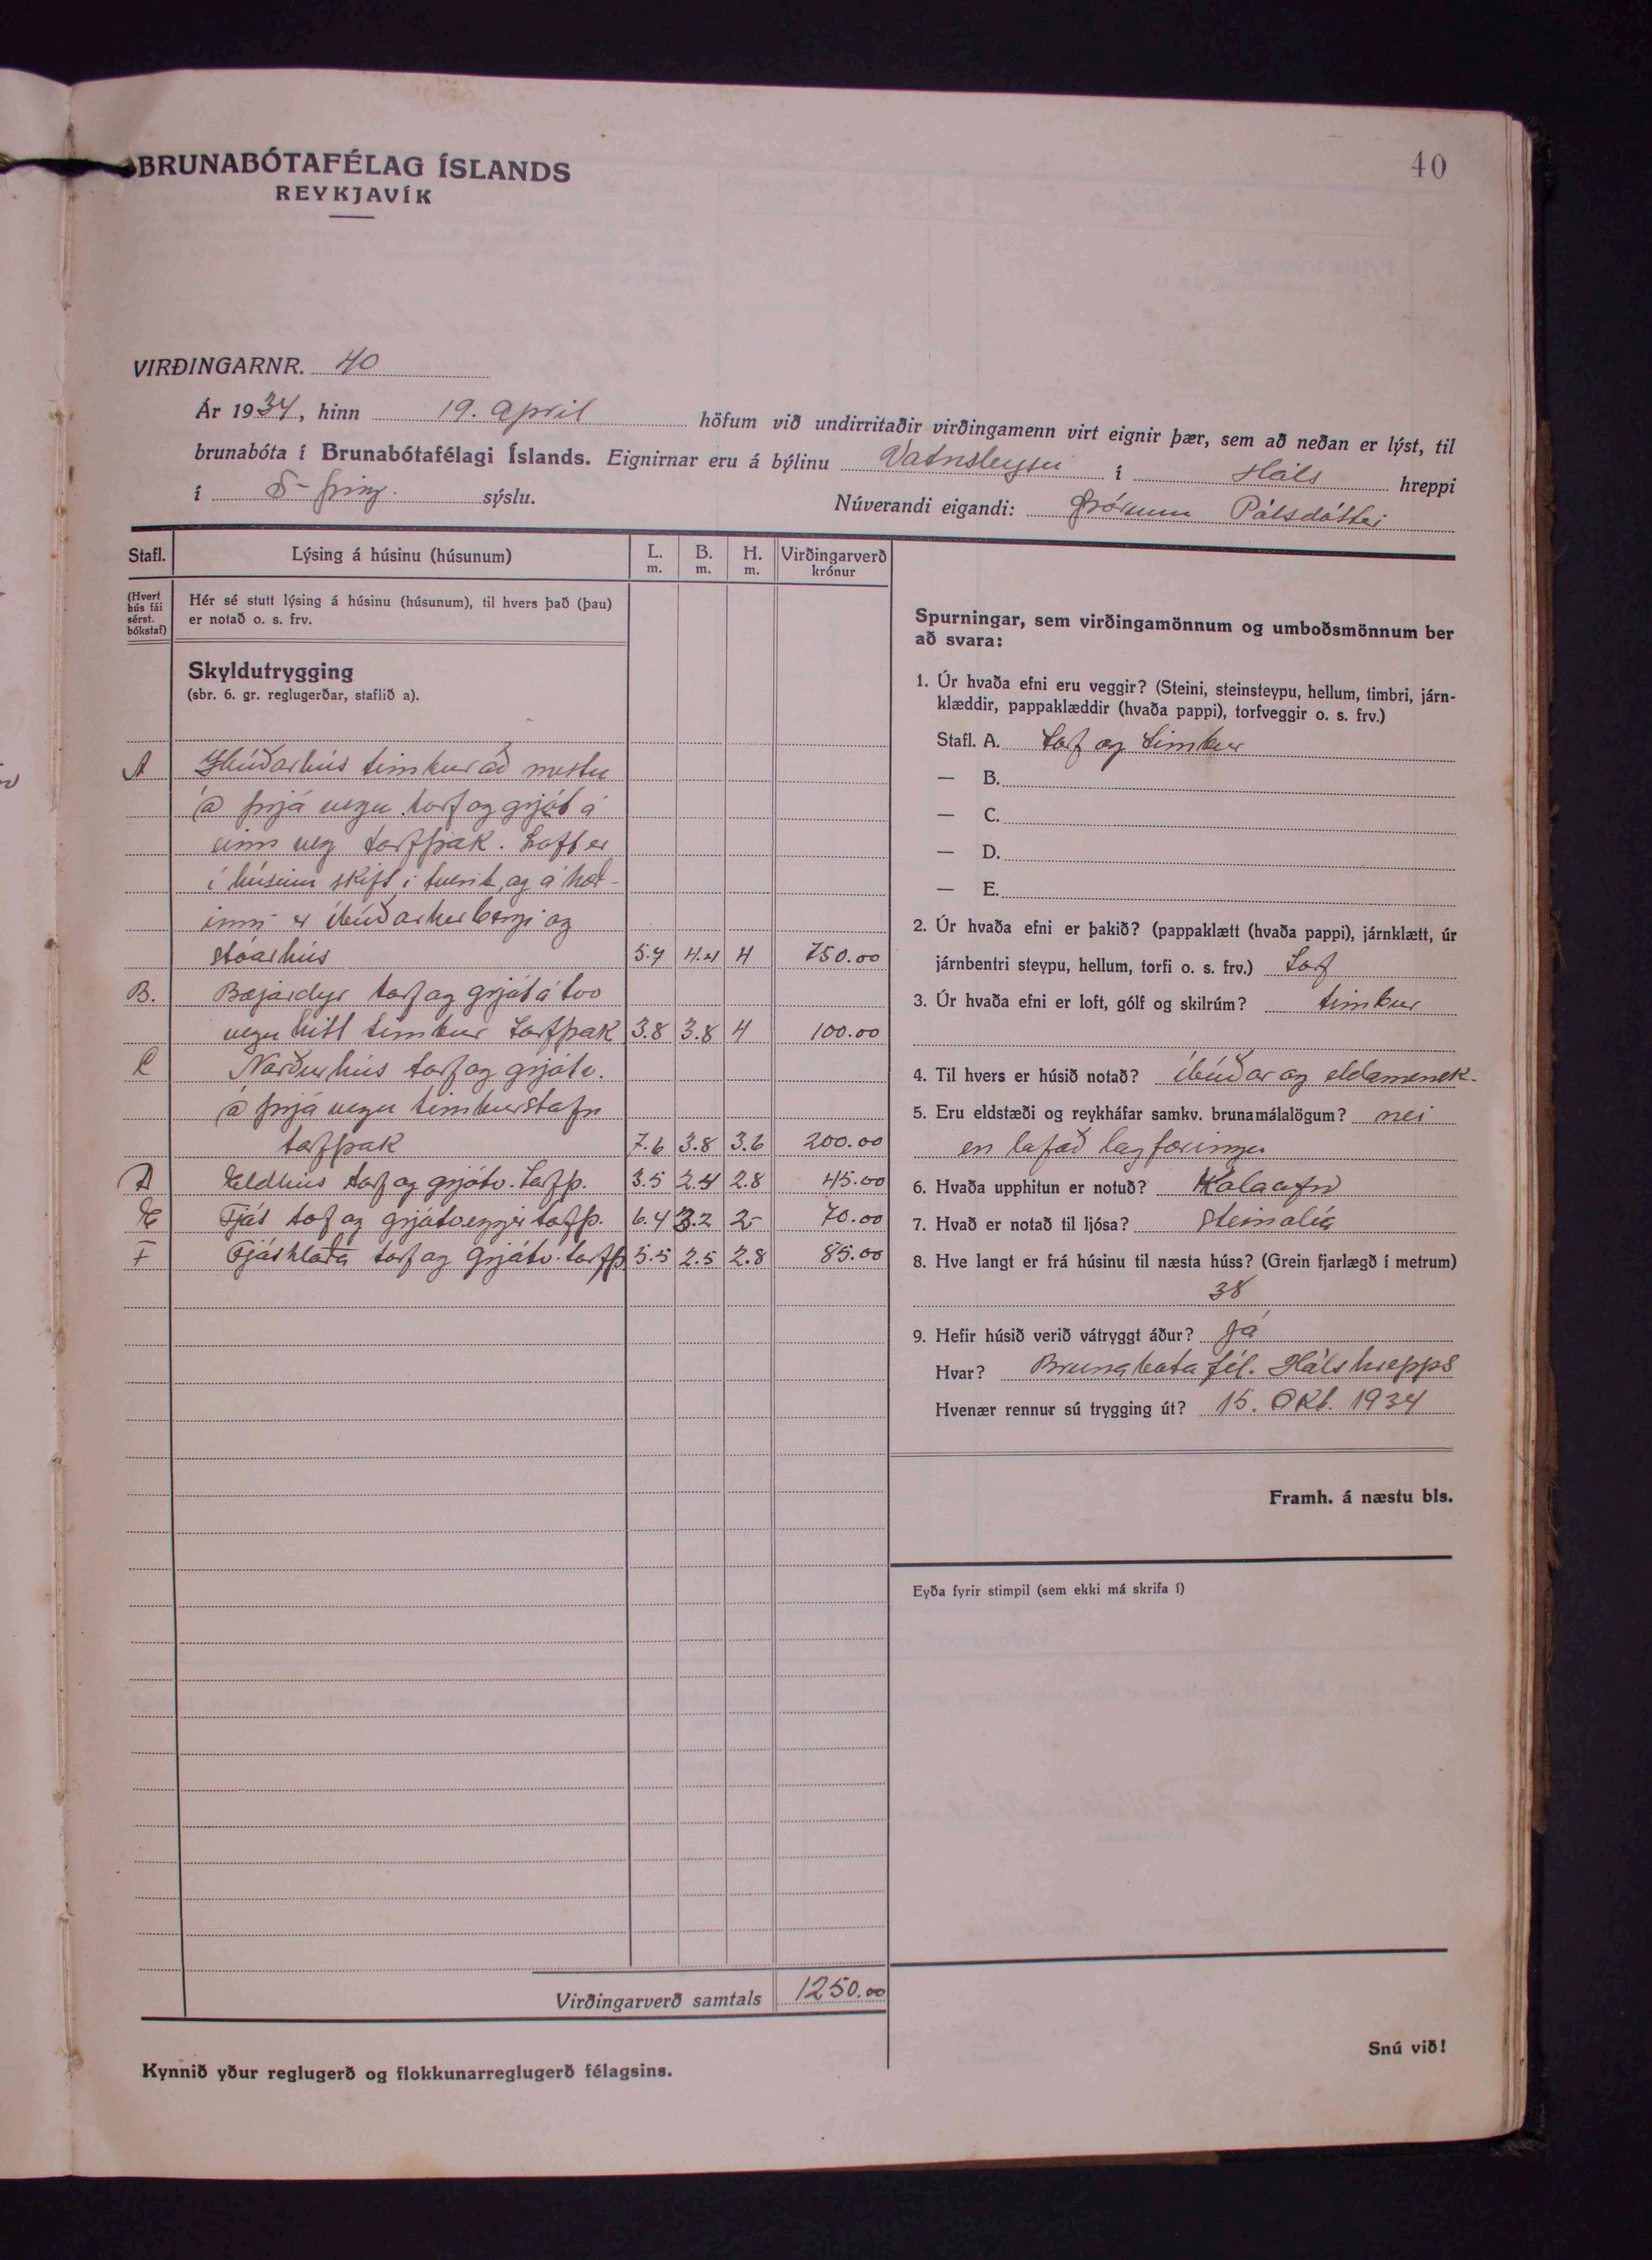 40
BRUNABÓTAFÉLAG ÍSLANDS
REYKJAVÍK
VIRÐINGARNR. 40
Ár 1934, hinn 19. April höfum við undirritaðir virðingamenn virt eignir þær, sem að neðan er lýst, til
brunabóta í Brunabótafélagi Íslands. Eignirnar eru á býlinu Vatnsleysu í Háls hreppi
í S-þing. sýslu. Núverandi eigandi: Þórunn Pálsdóttir
Stafl. Lýsing á húsinu (húsunum) L. m. B. m. H. m. Virðingarverð krónur
(Hvert hús fái sérst. bókstaf)
Hér sé stutt lýsing á húsinu (húsunum), til hvers það (þau)
er notað o. s. frv.
Skyldutrygging
(sbr. 6. gr. reglugerðar, staflið a).
A Íbúðarhús timbur að mestu
á þrjá vegu torf og grjót á
einn veg torfþak. Loft er
í húsinu skift í tvent, og á hæð-
inni er íbúðarherbergi og
stóarhús 5.7 4.4 4 750.00
B. Bæjardyr torf og grjót á tvo
vegu hitt timbur torfþak 3.8 3.8 4 100.00
C Norðurhús torf og grjótv.
á þrjá vegu timburstafn
torfþak 7.6 3.8 3.6 200.00
D Eldhús torf og grjótv. torfþ. 3.5 2.4 2.8 45.00
E Fjós torf og grjótveggir torfþ. 6.4 3.2 2- 70.00
F Fjóshlaða torf og grjótv. torfþ 5.5 2.5 2.8 85.00
Virðingarverð samtals 1250.00
Kynnið yður reglugerð og flokkunarreglugerð félagsins.
Spurningar, sem virðingamönnum og umboðsmönnum ber
að svara:
1. Úr hvaða efni eru veggir? (Steini, steinsteypu, hellum, timbri, járn-
klæddir, pappaklæddir (hvaða pappi), torfveggir o. s. frv.)
Stafl. A. torf og timbur
— B.
— C.
— D.
— E.
2. Úr hvaða efni er þakið? (pappaklætt (hvaða pappi), járnklætt, úr
járnbentri steypu, hellum, torfi o. s. frv.) torf
3. Úr hvaða efni er loft, gólf og skilrúm? timbur
4. Til hvers er húsið notað? íbúðar og eldamensk.
5. Eru eldstæði og reykháfar samkv. brunamálalögum? nei
en lofað lagfæringu
6. Hvaða upphitun er notuð? Kolaofn
7. Hvað er notað til ljósa? Steinolía
8. Hve langt er frá húsinu til næsta húss? (Grein fjarlægð í metrum)
38
9. Hefir húsið verið vátryggt áður? Já
Hvar? Brunabótafél. Hálshrepps
Hvenær rennur sú trygging út? 15. Okt. 1934
Framh. á næstu bls.
Eyða fyrir stimpil (sem ekki má skrifa í)
Snú við!